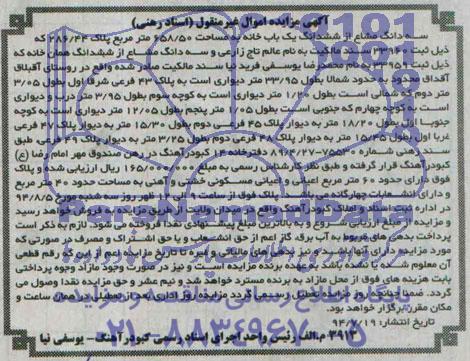 آگهی مزایده اموال غیرمنقول (اسناد رهنی)
سه دانگ مشاع از ششدانگ یک باب خانه به مساحت ۶۵۸/۵۰ متر مربع پلاک
ذیل ثبت سند مالکیت به نام عالم تاج زارعی و سه دانگ مشاع از ششدانگ همان خانه که
ذیل ثبت به نام محمدرضا یوسفی فرید نیا سند مالکیت صادر شده واقع در روستای آقبلاق
آقداق محدود به حدود شمالا بطول ۳۳/۹۵ متر دیواری است به پلاک ۴۳ فرعی شرقا اول بطول ۳/۰۵
متر دوم که شمالی است بطول ۱/۴۰ متر دیواری است به کوچه سوم بطول ۳/۹۵ متر درب و دیواری
است به کوچه چهارم که جنوبی است بطول متر پنجم بطول ۱۲/۰۵ متر دیواری است به کوچه
جنوبا اول بطول ۱۸/۲۰ متر به دیوار پلاک فرعی دوم بطول ۱۵/۳۰ متر به دیوار پلاک فرعی
غربا اول بطول ۱۵/۴۵ متر به دیوار پلاک ۴۸ فرعی دوم بطول ۳/۲۵ متر به دیوار پلاک فرعی طبق
سند رهنی شماره دفترخانه ۱۴ کبودرآهنگ در رهن صندوق مهر امام رضا (ع)
کبودرآهنگ قرار گرفته و طبق نظر کارشناس رسمی به مبلغ ۱۶۵/۰۰۰/۰۰۰ ریال ارزیابی شد و پلاک
فوق دارای حدود ۶۰ متر مربع اعیانی مسکونی خشتی و آهنی به مساحت حدود ۴۰ متر مربع
و دارای انشعابات چهارگانه می باشد پلاک فوق از ساعت ظهر روز سه شنبه مورخ ۹۴/۸/۵
در اداره ثبت اسناد و املاک کبودرآهنگ واقع در میدان ولایت از طریق مزایده به فروش خواهد رسید
و مزایده از مبلغ ارزیابی شروع و به بالاترین مبلغ پیشنهادی نقدا فروخته می شود. لازم به ذکر است
پرداخت بدهی های مربوط به آب برق گاز اعم از حق انشعاب و یا حق اشتراک و مصرف در صورتی که
مورد مزایده دارای آنها باشد و نیز بدهی های مالیاتی و غیره تا تاریخ مزایده اعم از این که رقم قطعی
آن معلوم شده یا نشده باشد به عهده برنده مزایده است و نیز در صورت وجود مازاد وجوه پرداختی
بابت هزینه های فوق از محل مازاد به برنده مسترد خواهد شد و نیم عشر و حق مزایده نقدا وصول می
گردد. ضمنا چنانچه روز مزایده تعطیل رسمی گردد مزایده روز اداری بعد از تعطیلی در همان ساعت و
مکان مقرر برگزار خواهد بود.
تاریخ انتشار: ۹۴/۷/۱۹
م.الف رئیس واحد اجرای اسناد رسمی کبودرآهنگ – یوسفی نیا
۰۲۱-۸۸۳۴۹۶۷۰-۵